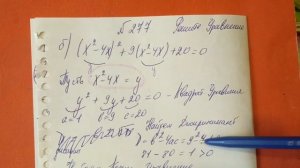 № 277 Решите Уравнение
б) (x²-4x)²+9(x²-4x)+20=0
Пусть x²-4x=y
y²+9y+20=0 - Квадрат Уравнения
a=1 b=9 c=20
Найдем Дискриминант
D=b²-4ac=9²-4
81-80=1>0